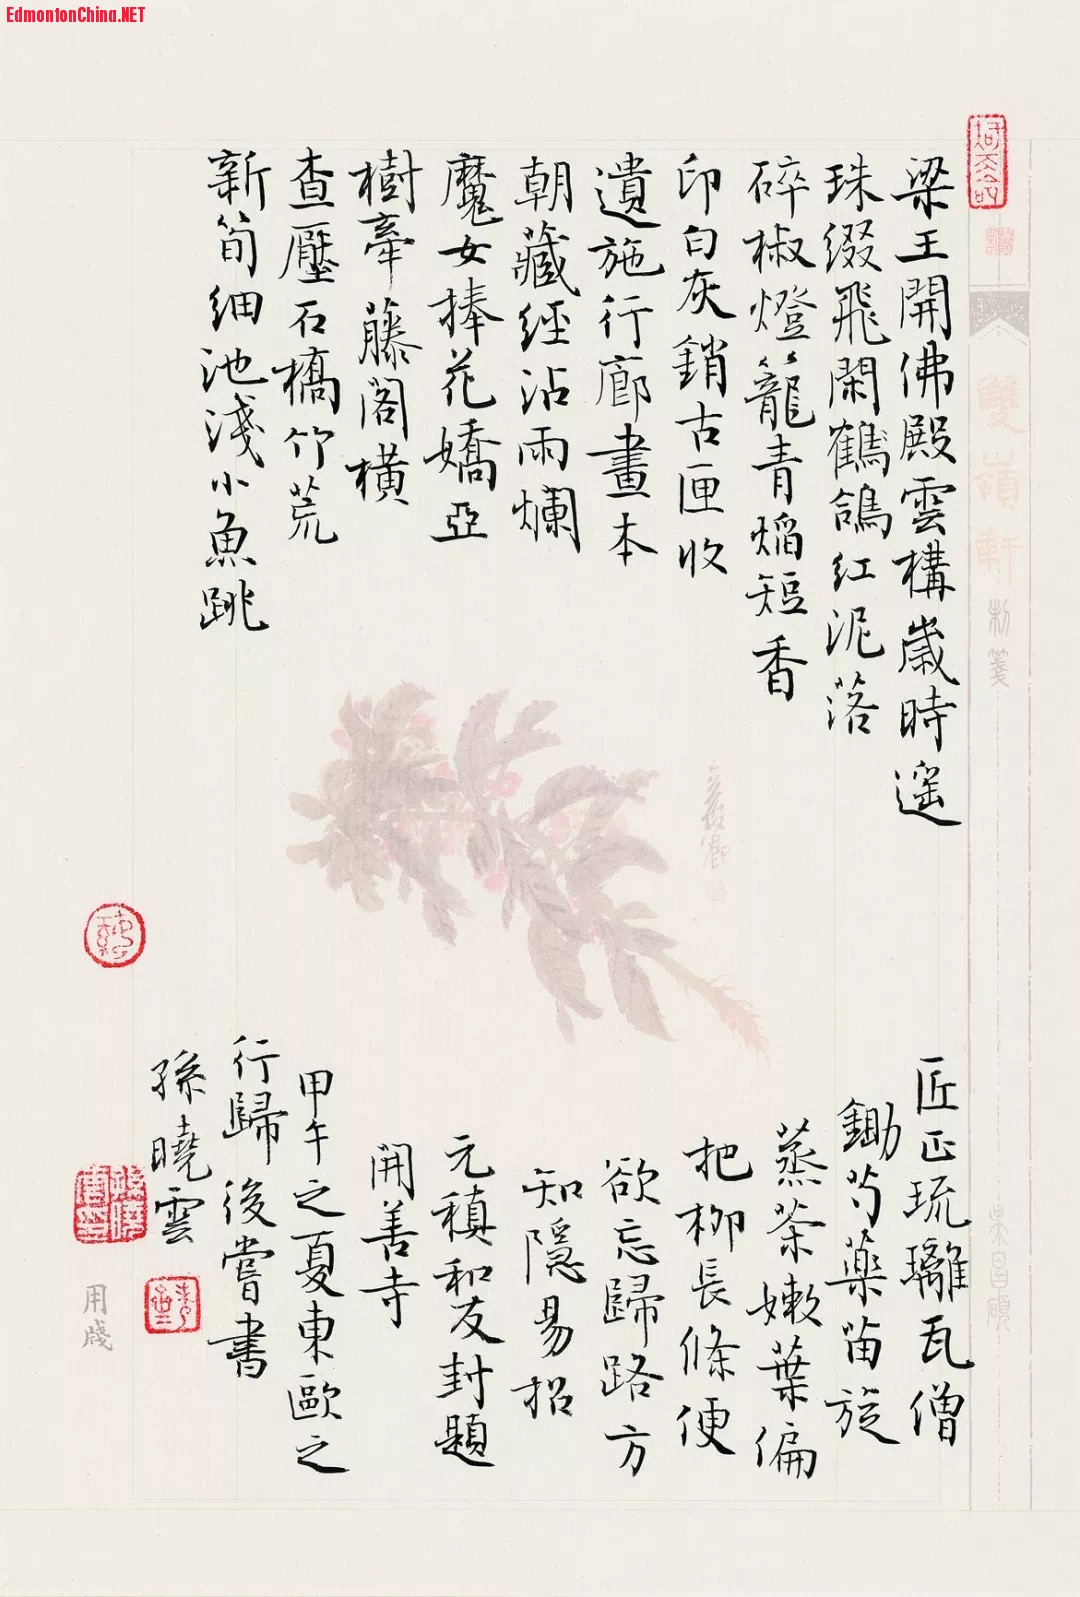 EdmontonChina.NET
梁王開佛殿雲構歲時遥
珠缀飛閑鶴鴿红泥落
碎椒燈籠青焔短香
印白灰銷古匣收
遺施行廊畫本
朝藏經沾雨爛
魔女捧花嬌亞
樹牽藤閣横
查壓石橋竹荒
新筍细池淺小魚跳
匠正琉璃瓦僧
鋤芍藥苗旋
蒸茶嫩葉偏
把柳長條便
欲忘歸路方
知隱易招
元稹和友封題
開善寺
甲午之夏東歐之
行歸後嘗書
孫曉雲
雙嶺軒
制箋
用牋